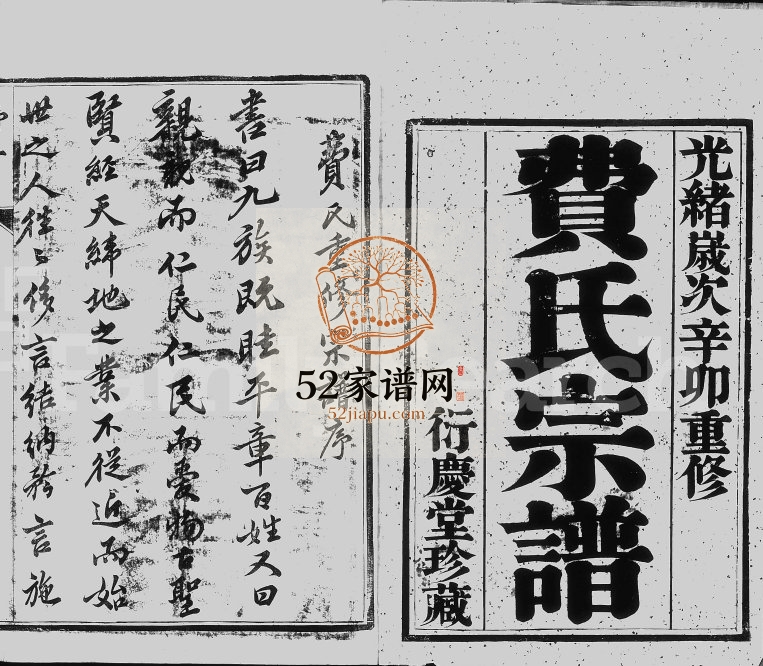 光緒歲次辛卯重修
費氏宗譜
衍慶堂珍藏
費氏重修宗譜序
書曰九族既睦平章百姓又曰
親親而仁民仁民而愛物古聖
賢經天緯地之業不從近而始
世之人徃〻侈言結納矜言施
52家谱网
52jiapu.com